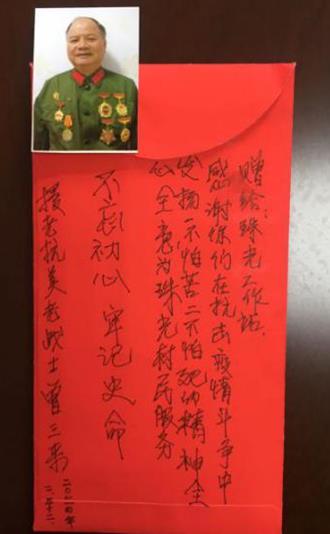 赠给：珠光工作站：
感谢你们在抗击疫情斗争中
发扬一不怕苦二不怕死的精神全
心全意为珠光村民服务
不忘初心 牢记史命
援老抗美老战士曾三